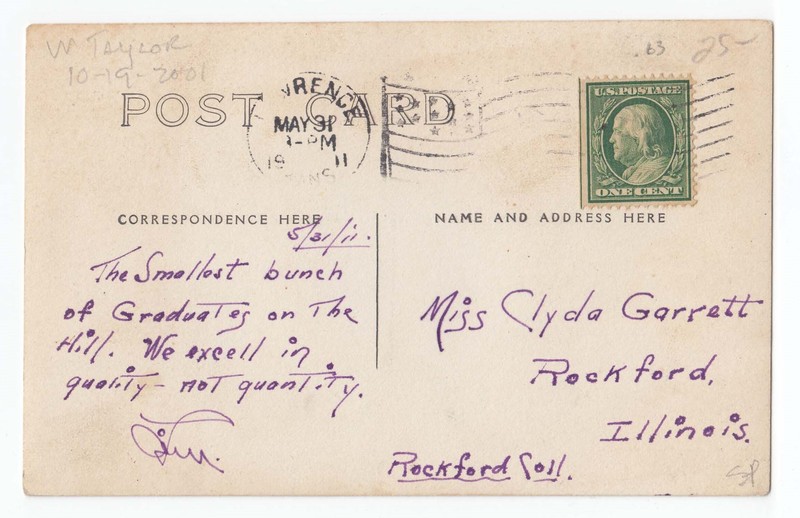 W Taylor
10-19-2001
63
25-
POST CARD
LAWRENCE
MAY 31
-PM
19 11
KANS.
U.S. POSTAGE
ONE CENT
CORRESPONDENCE HERE
NAME AND ADDRESS HERE
5/31/11.
The Smallest bunch
of Graduates on The
Hill. We excell in
quality - not quantity.
Miss Clyda Garrett
Rockford,
Illinois.
Rockford Coll.